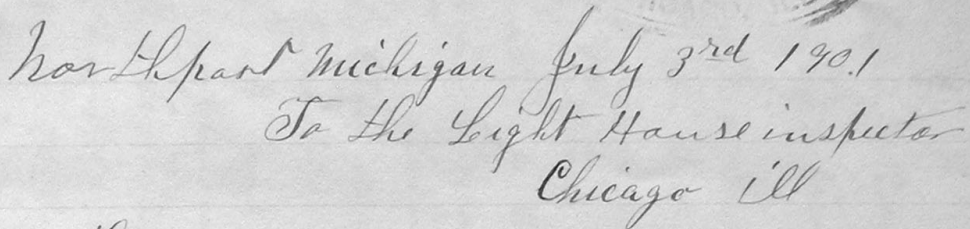 Northport Michigan July 3rd 1901
To the Light House inspector
Chicago ill